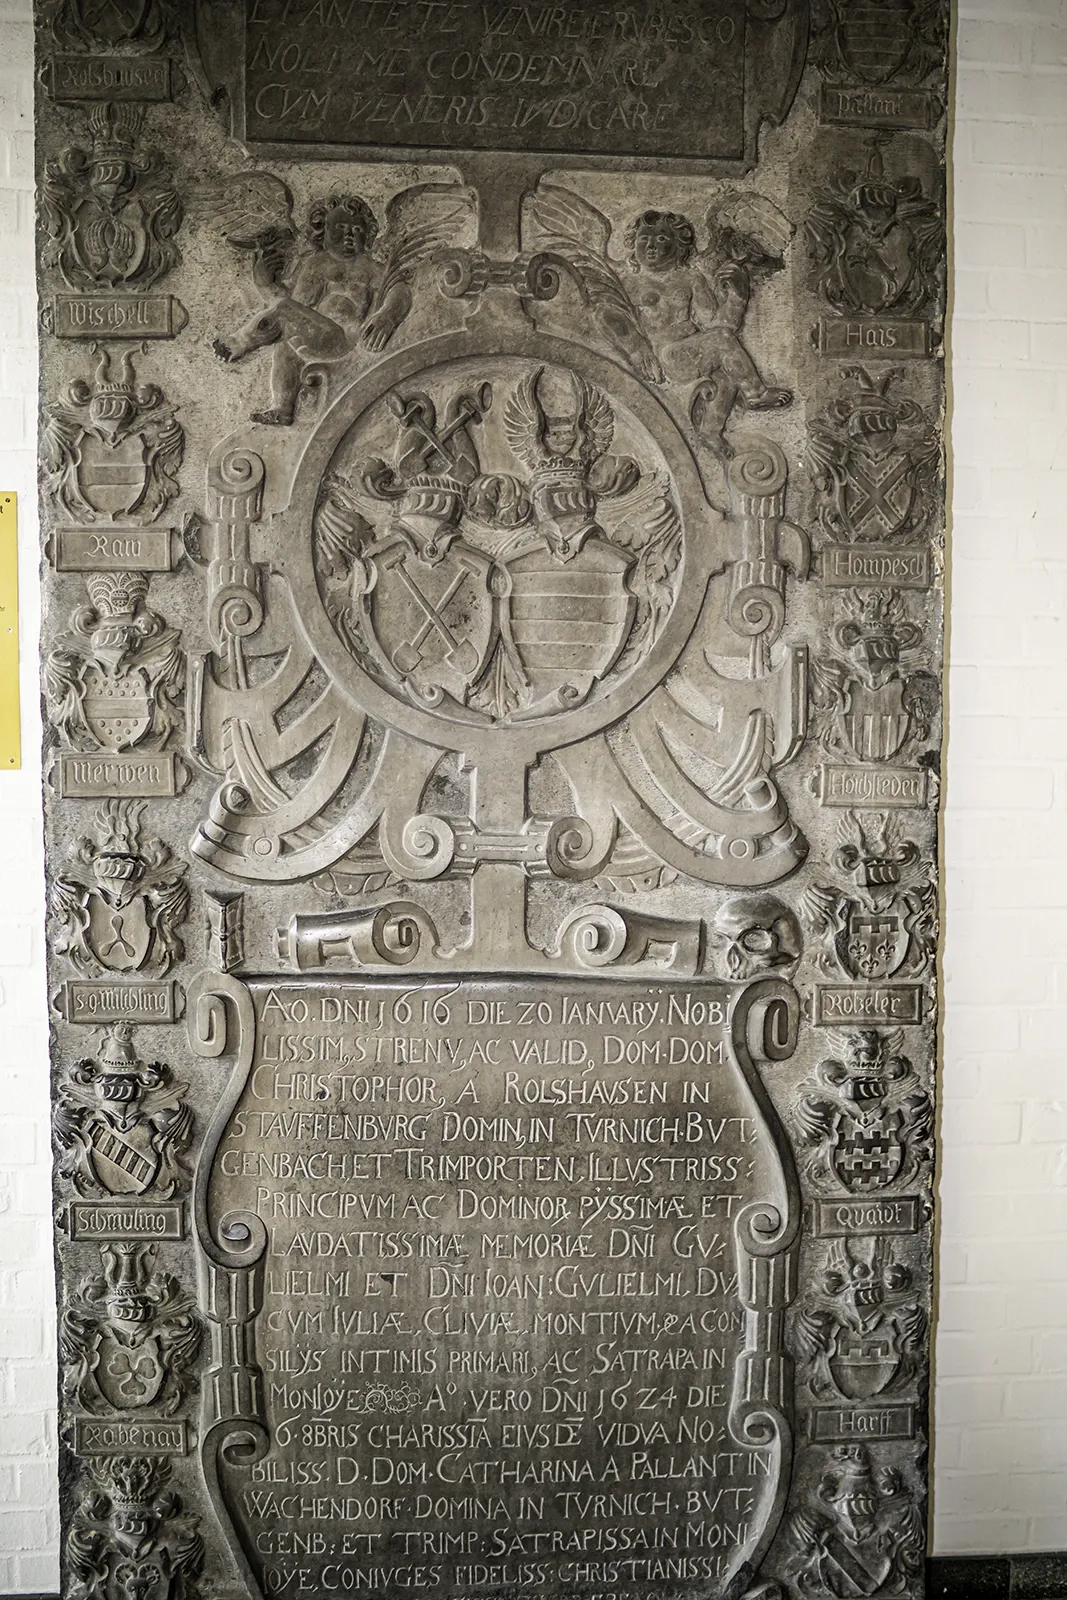 ET ANTE TE VENIRE ERVBESCO
NOLI ME CONDEMNARE
CVM VENERIS IVDICARE
Rolshausen
Pallant
Wischell
Hais
Raw
Hompesch
Merwen
Hoichsteden
s.g.Milchling
Rotzeler
Schmuling
Quaidt
Rabenau
Harff
AO.DNI 1616 DIE 20 IANVARŸ.NOBI
LISSIM, STRENV, AC VALID, DOM.DOM
CHRISTOPHOR, A ROLSHAVSEN IN
STAVFFENBVRG DOMIN, IN TVRNICH.BVT:
GENBACH, ET TRIMPORTEN, ILLVSTRISS:
PRINCIPVM AC DOMINOR PŸSSIMÆ ET
LAVDATISSIMÆ MEMORIÆ DÑI GV:
LIELMI ET DÑI IOAN: GVLIELMI DV
CVM IVLIÆ, CLIVIÆ, MONTIVM, &A CON
SILŸS INTIMIS PRIMARI, AC SATRAPA IN
MONIOŸE Aº. VERO DÑI 1624 DIE
6.8BRIS CHARISSĪA EIVSDĒ VIDVA NO:
BILISS. D. DOM. CATHARINA A PALLANT IN
WACHENDORF. DOMINA IN TVRNICH. BVT:
GENB: ET TRIMP: SATRAPISSA IN MONI:
IOŸE, CONIVGES FIDELISS: CHRISTIANISSI: